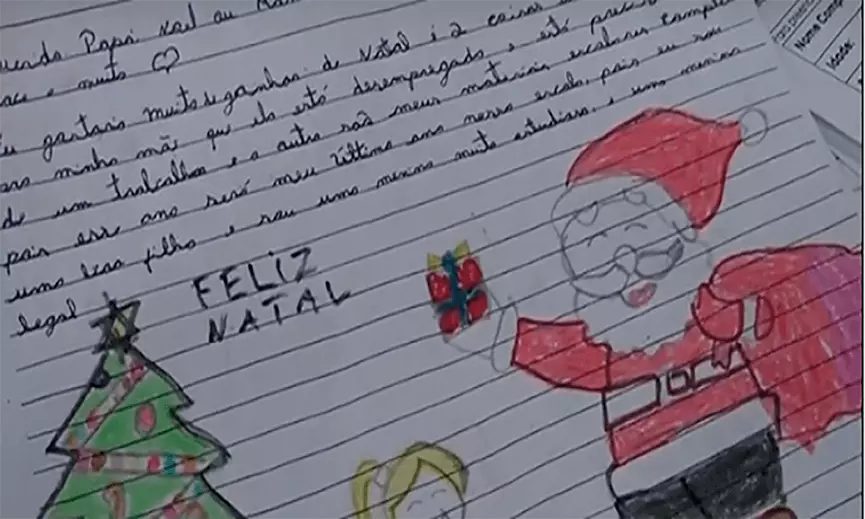 uerido Papai Noel ou
e muito
Eu gostaria muito de ganhar de Natal é 2 coisas
minha mãe que ela está desempregada e está
de um trabalho e a outra são meus materiais escolares
pois esse ano será meu último ano nessa escola, pois eu sou
uma boa filha e sou uma menina muito estudiosa, e uma menina
legal
FELIZ
NATAL
Nome Comp
Idade: